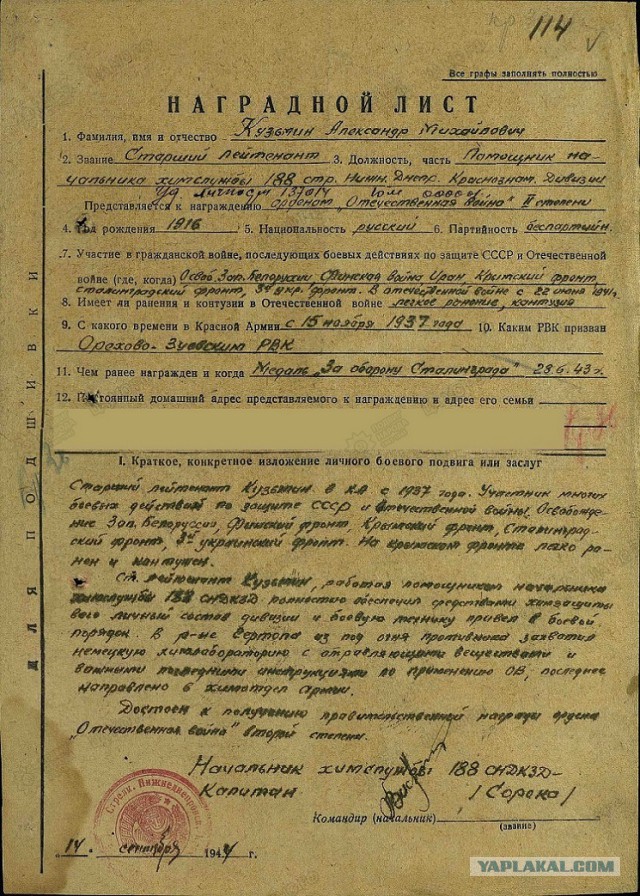 114
Все графы заполнять полностью
НАГРАДНОЙ ЛИСТ
1. Фамилия, имя и отчество Кузьмин Александр Михайлович
2. Звание Старший лейтенант 3. Должность, часть Помощник на-
чальника химслужбы 188 стр. Нижн. Днепр. Краснознам. Дивизии
Представляется к награждению орденом „Отечественная война" II степени
4. Год рождения 1916 5. Национальность русский 6. Партийность беспартийн.
7. Участие в гражданской войне, последующих боевых действиях по защите СССР и Отечественной
войне (где, когда) Освоб. Зап. Белоруссии Финская война Иран, Крымский фронт,
Сталинградский фронт, 3й укр. фронт. В отечественной войне с 22 июня 1941г.
8. Имеет ли ранения и контузии в Отечественной войне легкое ранение, контузия
9. С какого времени в Красной Армии с 15 ноября 1937 года 10. Каким РВК призван
Орехово-Зуевским РВК
11. Чем ранее награжден и когда Медаль „За оборону Сталинграда" 23.6.43 г.
12. Постоянный домашний адрес представляемого к награждению и адрес его семьи
ДЛЯ ПОДШИВКИ
I. Краткое, конкретное изложение личного боевого подвига или заслуг
Старший лейтенант Кузьмин в КА с 1937 года. Участник многих
боевых действий по защите СССР и отечественной войны. Освобожде-
ние Зап. Белоруссии, Финский фронт, Крымский фронт, Сталинград-
ский фронт, 3й украинский фронт. На крымском фронте легко ра-
нен и контужен.
Ст. лейтенант Кузьмин, работая помощником начальника
химслужбы 188 СНДКЗД полностью обеспечил средствами химзащиты
весь личный состав дивизии и боевую технику привел в боевой
порядок. В р-не Сертопа из под огня противника захватил
немецкую химлабораторию с отравляющими веществами и
важными последними инструкциями по применению ОВ, последнее
направлено в химотдел армии.
Достоен к получению правительственной награды ордена
„Отечественная война" второй степени.
Начальник химслужбы 188 СНДКЗД-
Капитан /Сорока/
Командир (начальник)
(звание)
14. сентября 1944 г.
YAPLAKAL.COM